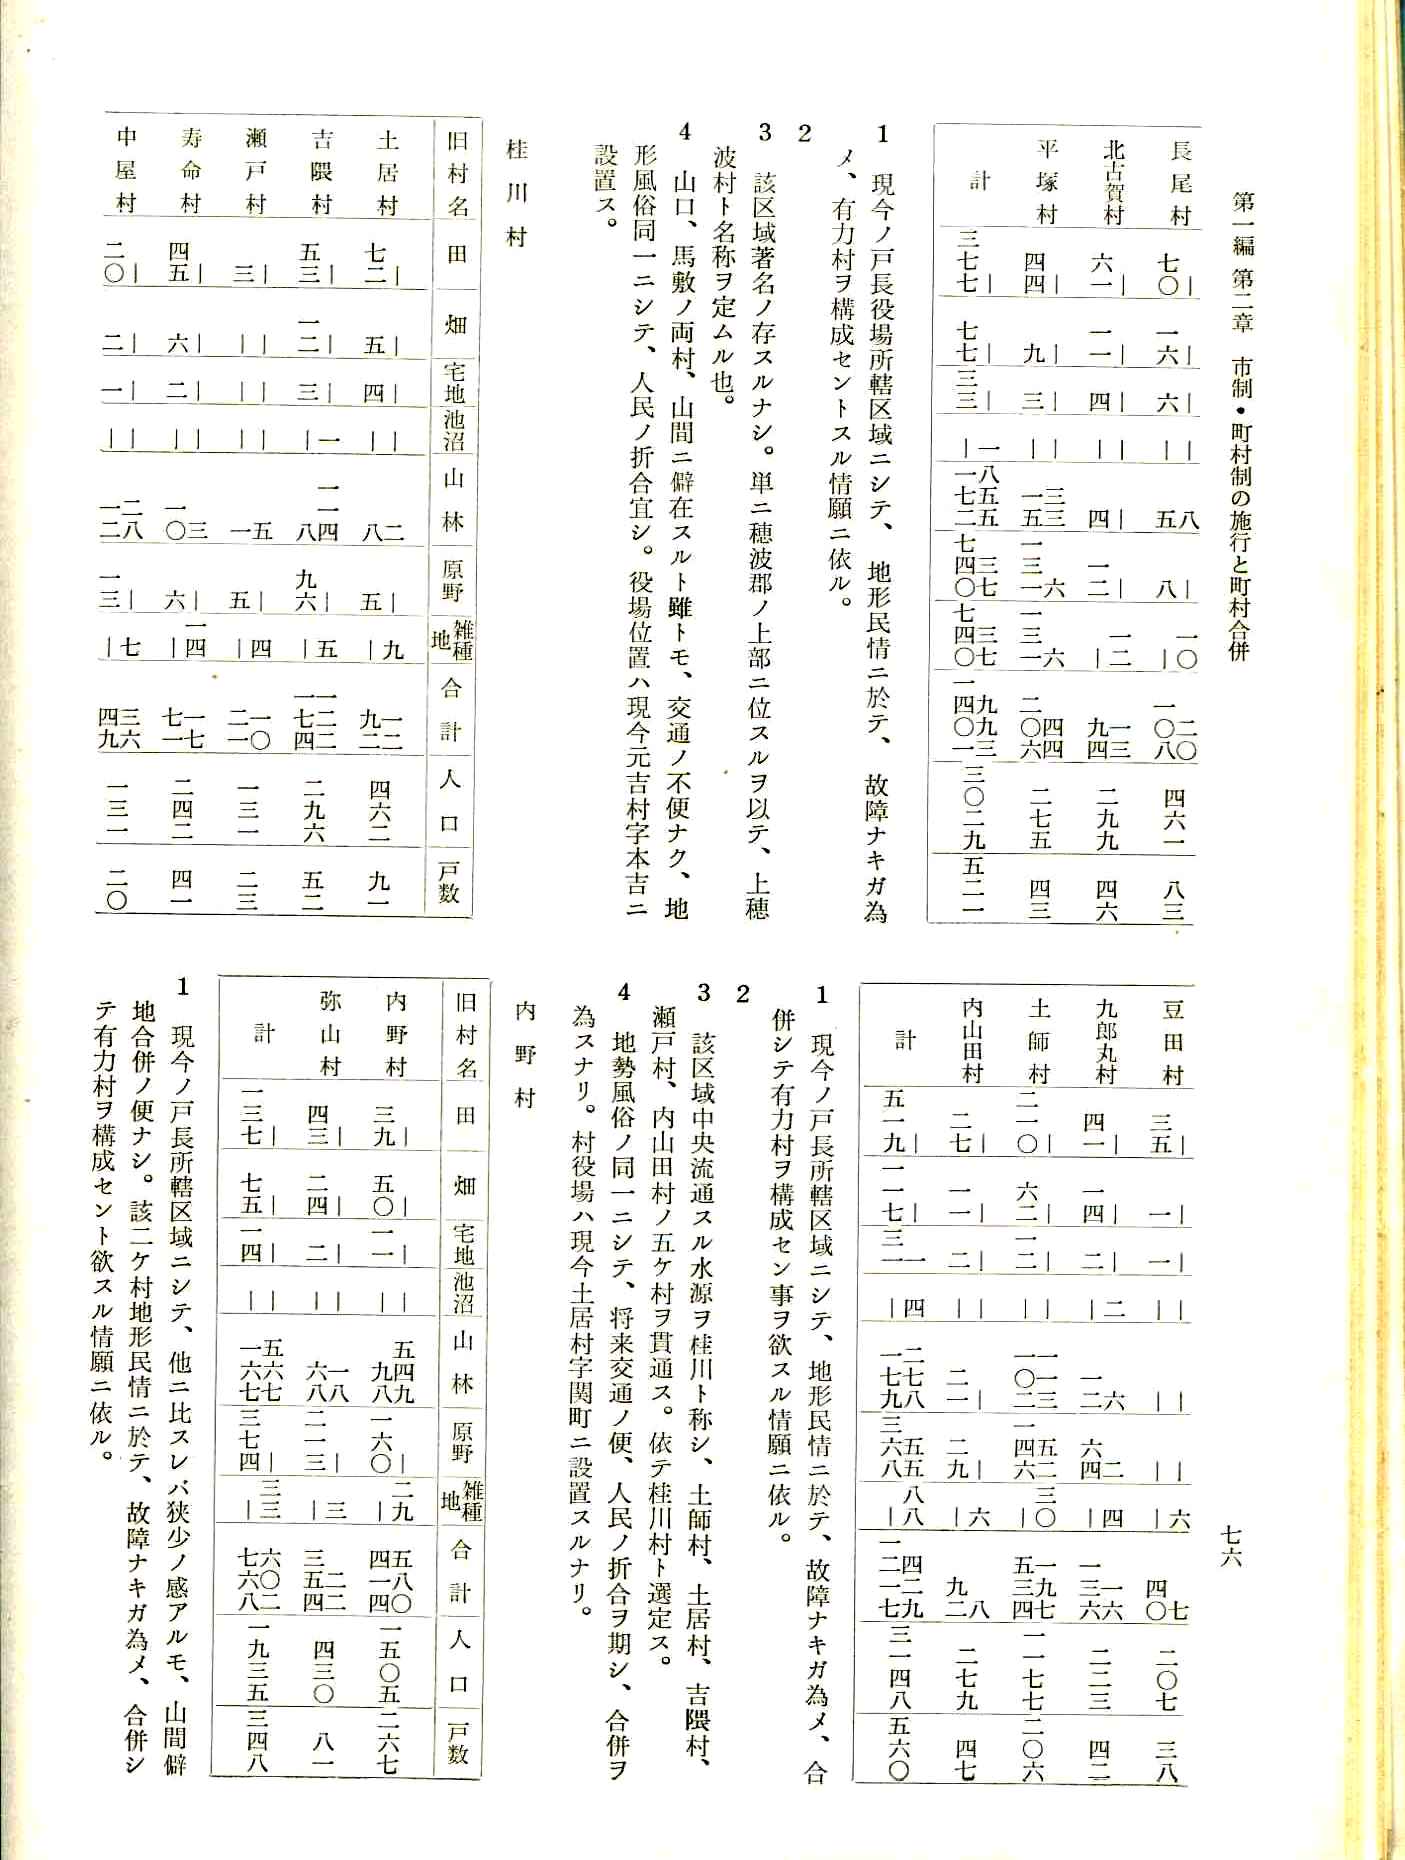 第一編 第二章 市制・町村制の施行と町村合併
七六
長尾村 ｜七〇 ｜一六 ｜六 ｜｜ 八 五 ｜八 一〇｜ 二〇 一〇八 四六一 八三
北古賀村 ｜六一 ｜一一 ｜四 ｜｜ ｜四 ｜一二 一二｜ 一三 九四 二九九 四六
平塚村 ｜四四 ｜九 ｜三 ｜｜ 三三 一五 六 一三一 六 一三一 四四 二〇六 二七五 四三
計 ｜三七七 ｜七七 ｜三三 一｜ 八五五 一七二 三七 七四〇 三七 七四〇 九九三 一四〇一 三〇二九 五二一
1 現今ノ戸長役場所轄区域ニシテ、地形民情ニ於テ、故障ナキガ為
メ、有力村ヲ構成セントスル情願ニ依ル。
2
3 該区域著名ノ存スルナシ。単ニ穂波郡ノ上部ニ位スルヲ以テ、上穂
波村ト名称ヲ定ムル也。
4 山口、馬敷ノ両村、山間ニ僻在スルト雖トモ、交通ノ不便ナク、地
形風俗同一ニシテ、人民ノ折合宜シ。役場位置ハ現今元吉村字本吉ニ
設置ス。
桂川村
旧村名 田 畑 宅地 池沼 山林 原野 雑種地 合計 人口 戸数
土居村 ｜七二 ｜五 ｜四 ｜｜ 二 八 ｜五 九｜ 一二 九二 四六二 九一
吉隈村 ｜五三 ｜一二 ｜三 一｜ 一一四 八 ｜九六 五｜ 一二二 一七四 二九六 五二
瀬戸村 ｜三 ｜｜ ｜｜ ｜｜ 五 一 ｜五 四｜ 一〇 二一 一三一 二三
寿命村 ｜四五 ｜六 ｜二 ｜｜ 三 一〇 ｜六 一四｜ 一七 七一 二四二 四一
中屋村 ｜二〇 ｜二 ｜一 ｜｜ 二八 一二 ｜一三 七｜ 三六 四九 一三一 二〇
豆田村 ｜三五 ｜一 ｜一 ｜｜ ｜｜ ｜｜ 六｜ 七 四〇 二〇七 三八
九郎丸村 ｜四一 ｜一四 ｜二 二｜ 六 一二 二 六四 四｜ 一六 一三六 二二三 四二
土師村 ｜二一〇 ｜六二 ｜一二 ｜｜ 一一三 一〇二 五二 一四六 三〇｜ 一九七 五三四 一一七七 二〇六
内山田村 ｜二七 ｜一一 ｜二 ｜｜ ｜二一 ｜二九 六｜ 八 九二 二七九 四七
計 ｜五一九 ｜一一七 ｜三一 四｜ 二七八 一七九 五五 三六八 八八｜ 四二九 一二一七 三一四八 五六〇
1 現今ノ戸長所轄区域ニシテ、地形民情ニ於テ、故障ナキガ為メ、合
併シテ有力村ヲ構成セン事ヲ欲スル情願ニ依ル。
2
3 該区域中央流通スル水源ヲ桂川ト称シ、土師村、土居村、吉隈村、
瀬戸村、内山田村ノ五ケ村ヲ貫通ス。依テ桂川村ト選定ス。
4 地勢風俗ノ同一ニシテ、将来交通ノ便、人民ノ折合ヲ期シ、合併ヲ
為スナリ。村役場ハ現今土居村字関町ニ設置スルナリ。
内野村
旧村名 田 畑 宅地 池沼 山林 原野 雑種地 合計 人口 戸数
内野村 ｜三九 ｜五〇 ｜一一 ｜｜ 五四九 九八 ｜一六〇 二九｜ 五八〇 四一四 一五〇五 二六七
弥山村 ｜四三 ｜二四 ｜二 ｜｜ 一八 六八 ｜二一三 三｜ 二二 三五四 四三〇 八一
計 ｜一三七 ｜七五 ｜一四 ｜｜ 五六七 一六七 ｜三七四 三三｜ 六〇二 七六八 一九三五 三四八
1 現今ノ戸長所轄区域ニシテ、他ニ比スレバ狭少ノ感アルモ、山間僻
地合併ノ便ナシ。該二ケ村地形民情ニ於テ、故障ナキガ為メ、合併シ
テ有力村ヲ構成セント欲スル情願ニ依ル。